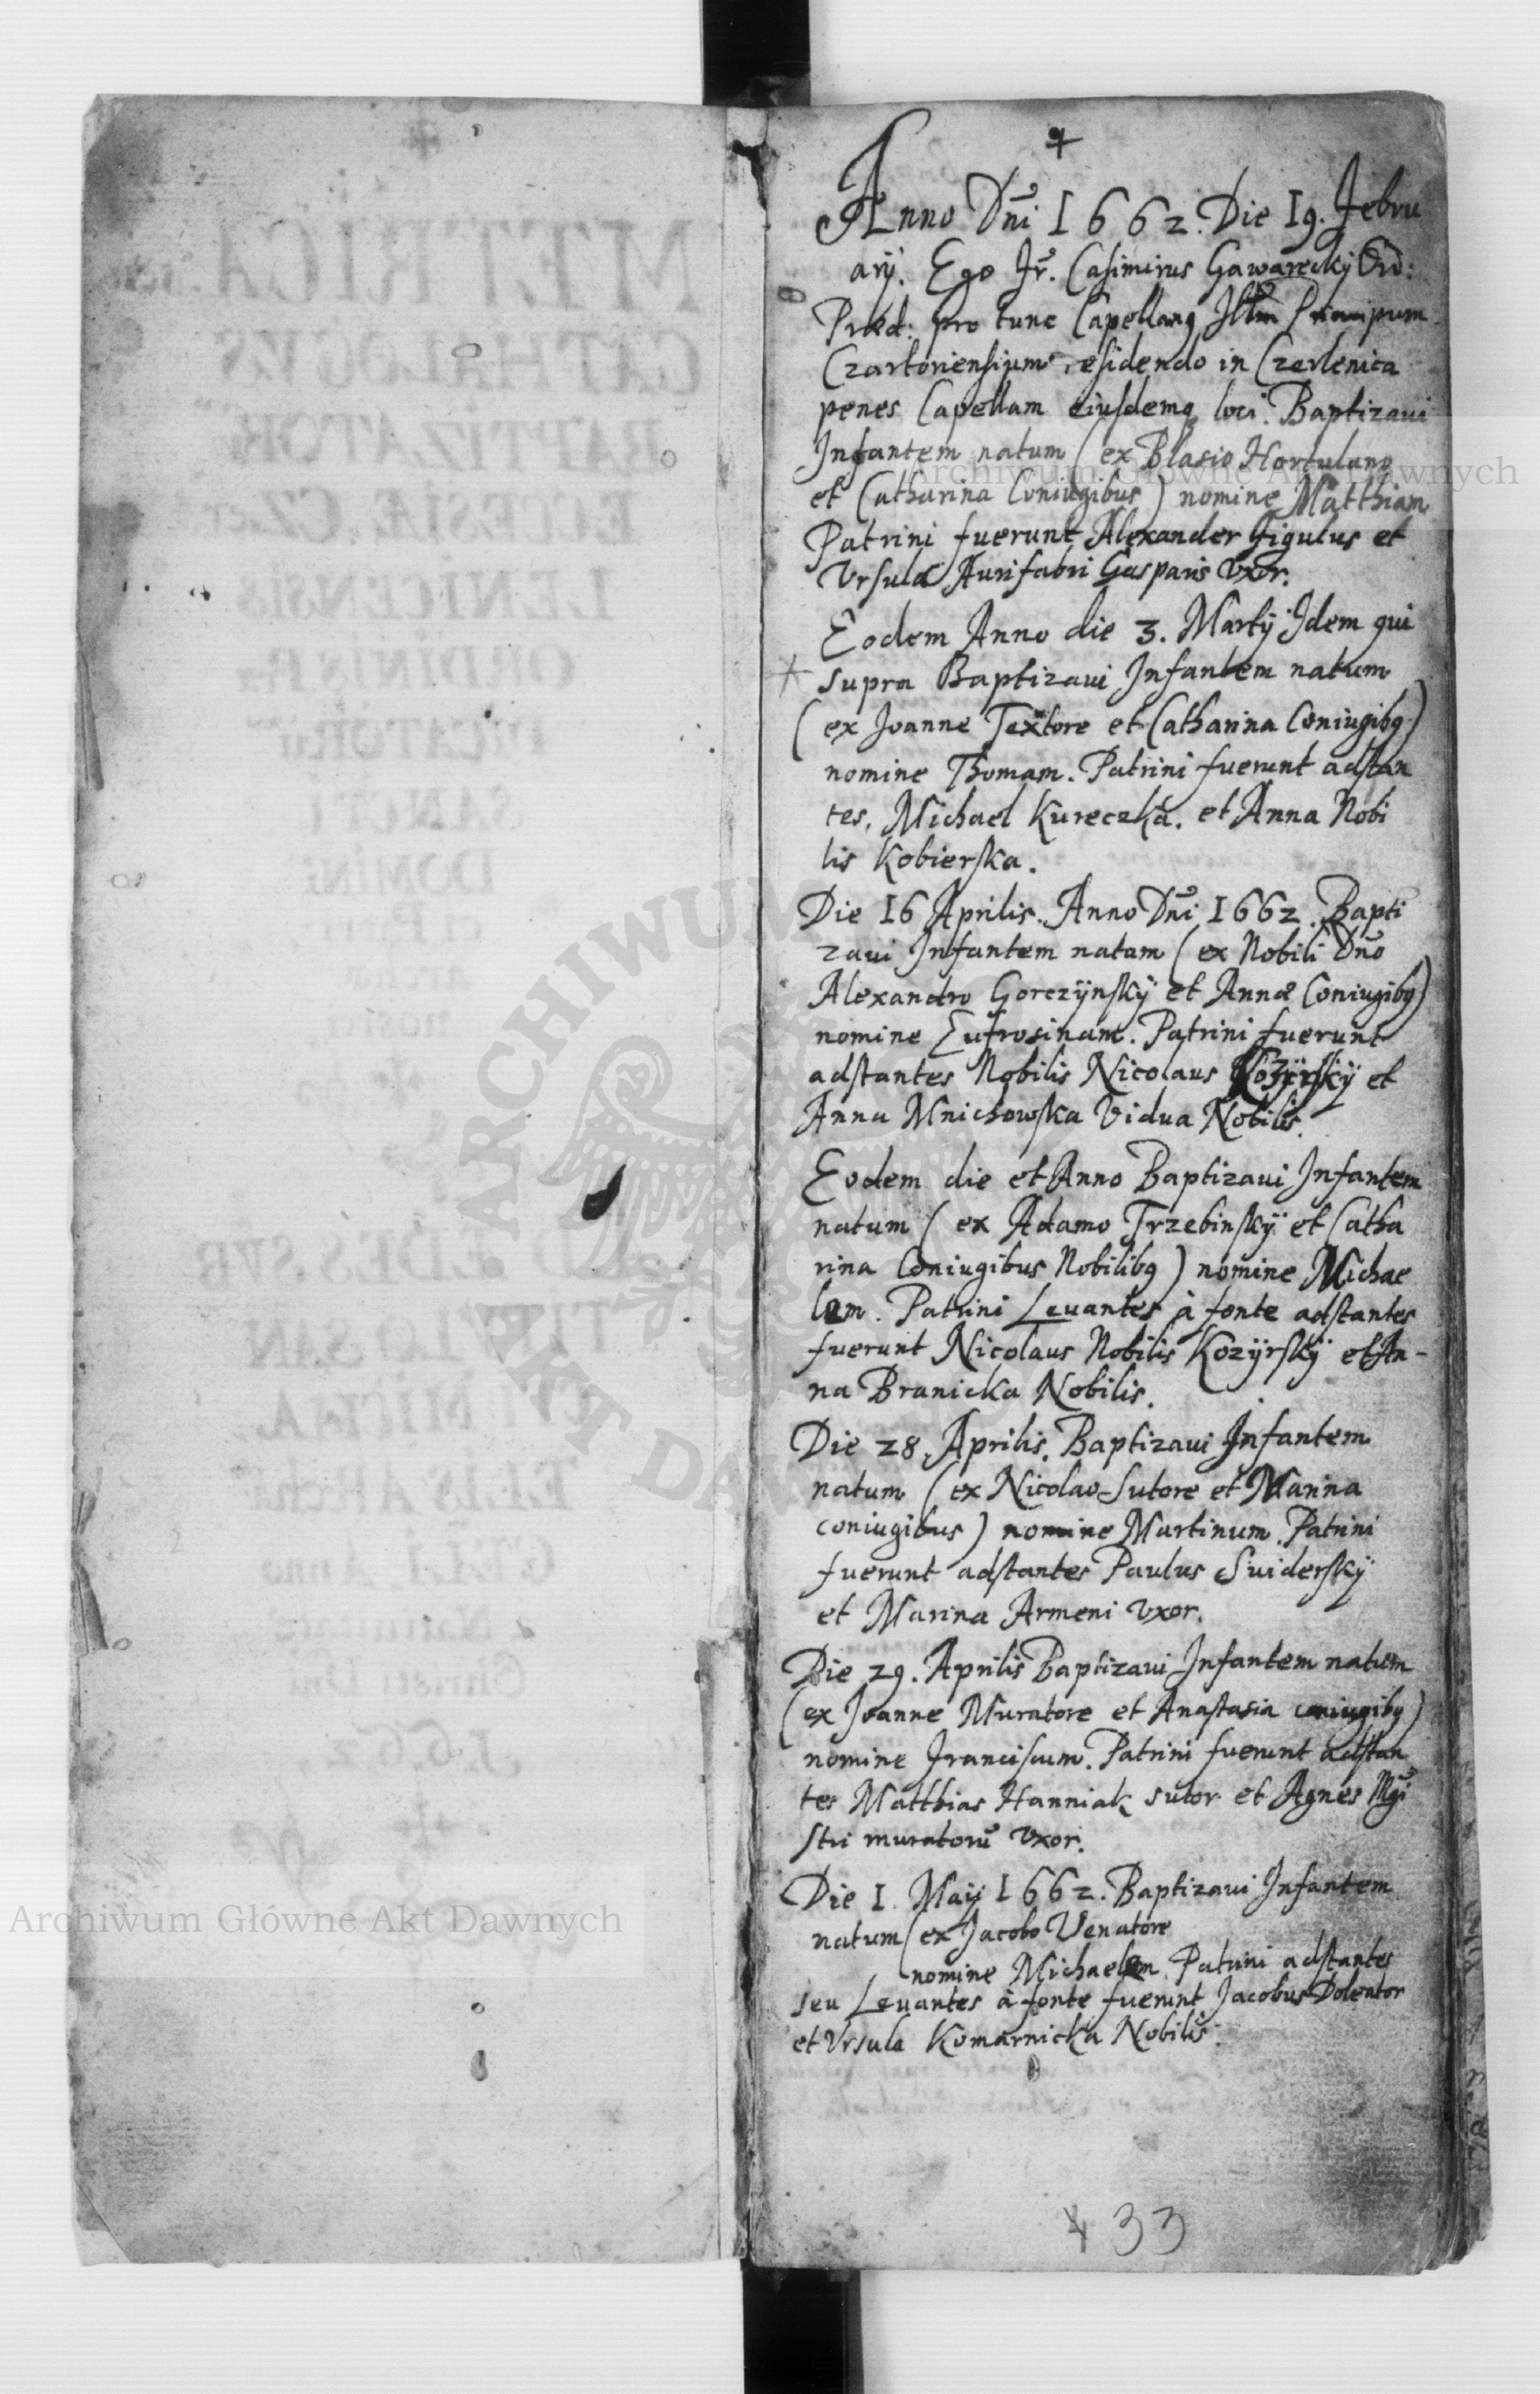 Anno Dñi 1662. Die 19. Febru
arÿ. Ego Fr. Casimirus Gawareckÿ Ord:
Præd: pro tunc Capellanq Illm Principum
Czartoriensium residendo in Czerlenica
penes Capellam eiusdemq loci. Baptizaui
Infantem natum (ex Blasio Hortulano
et Catharina Coniugibus) nomine Matthiam
Patrini fuerunt Alexander Figulus et
Vrsula Aurifabri Gasparis Vxor.
Eodem Anno die 3. Martÿ Idem qui
supra Baptizaui Infantem natum
(ex Joanne Textore et Catharina Coniugibq)
nomine Thomam. Patrini fuerunt adstan
tes, Michael Kureczka. et Anna Nobi
lis Kobierska.
Die 16 Aprilis. Anno Dñi 1662. Bapti
zaui Infantem natam (ex Nobili Dño
Alexandro Gorczÿnskÿ et Anna Coniugibq)
nomine Eufrosinam. Patrini fuerunt
adstantes Nobilis Nicolaus Kozÿrskÿ et
Anna Mnichowska Vidua Nobilis.
Eodem die et Anno Baptizaui Infantem
natum (ex Adamo Trzebinskÿ et Catha
rina Coniugibus Nobilibq) nomine Michae
lem. Patrini Leuantes à fonte adstantes
fuerunt Nicolaus Nobilis Kozÿrskÿ et An-
na Branicka Nobilis.
Die 28 Aprilis. Baptizaui Infantem
natum (ex Nicolao Sutore et Marina
coniugibus) nomine Martinum. Patrini
fuerunt adstantes Paulus Suiderskÿ
et Marina Armeni Vxor.
Die 29. Aprilis Baptizaui Infantem natum
(ex Joanne Muratore et Anastasia coniugibq)
nomine Franciscum. Patrini fuerunt adstan
tes Matthias Hanniak sutor et Agnes Mgi
stri muratorũ Vxor.
Die 1. Maÿ 1662. Baptizaui Infantem
natum (ex Jacobo Venatore
nomine Michaelem. Patrini adstantes
seu Leuantes à fonte fuerunt Jacobus Doleator
et Vrsula Komarnicka Nobilis.
33
Archiwum Główne Akt Dawnych
Archiwum Główne Akt Dawnych
ARCHIWUM
AKT DAW